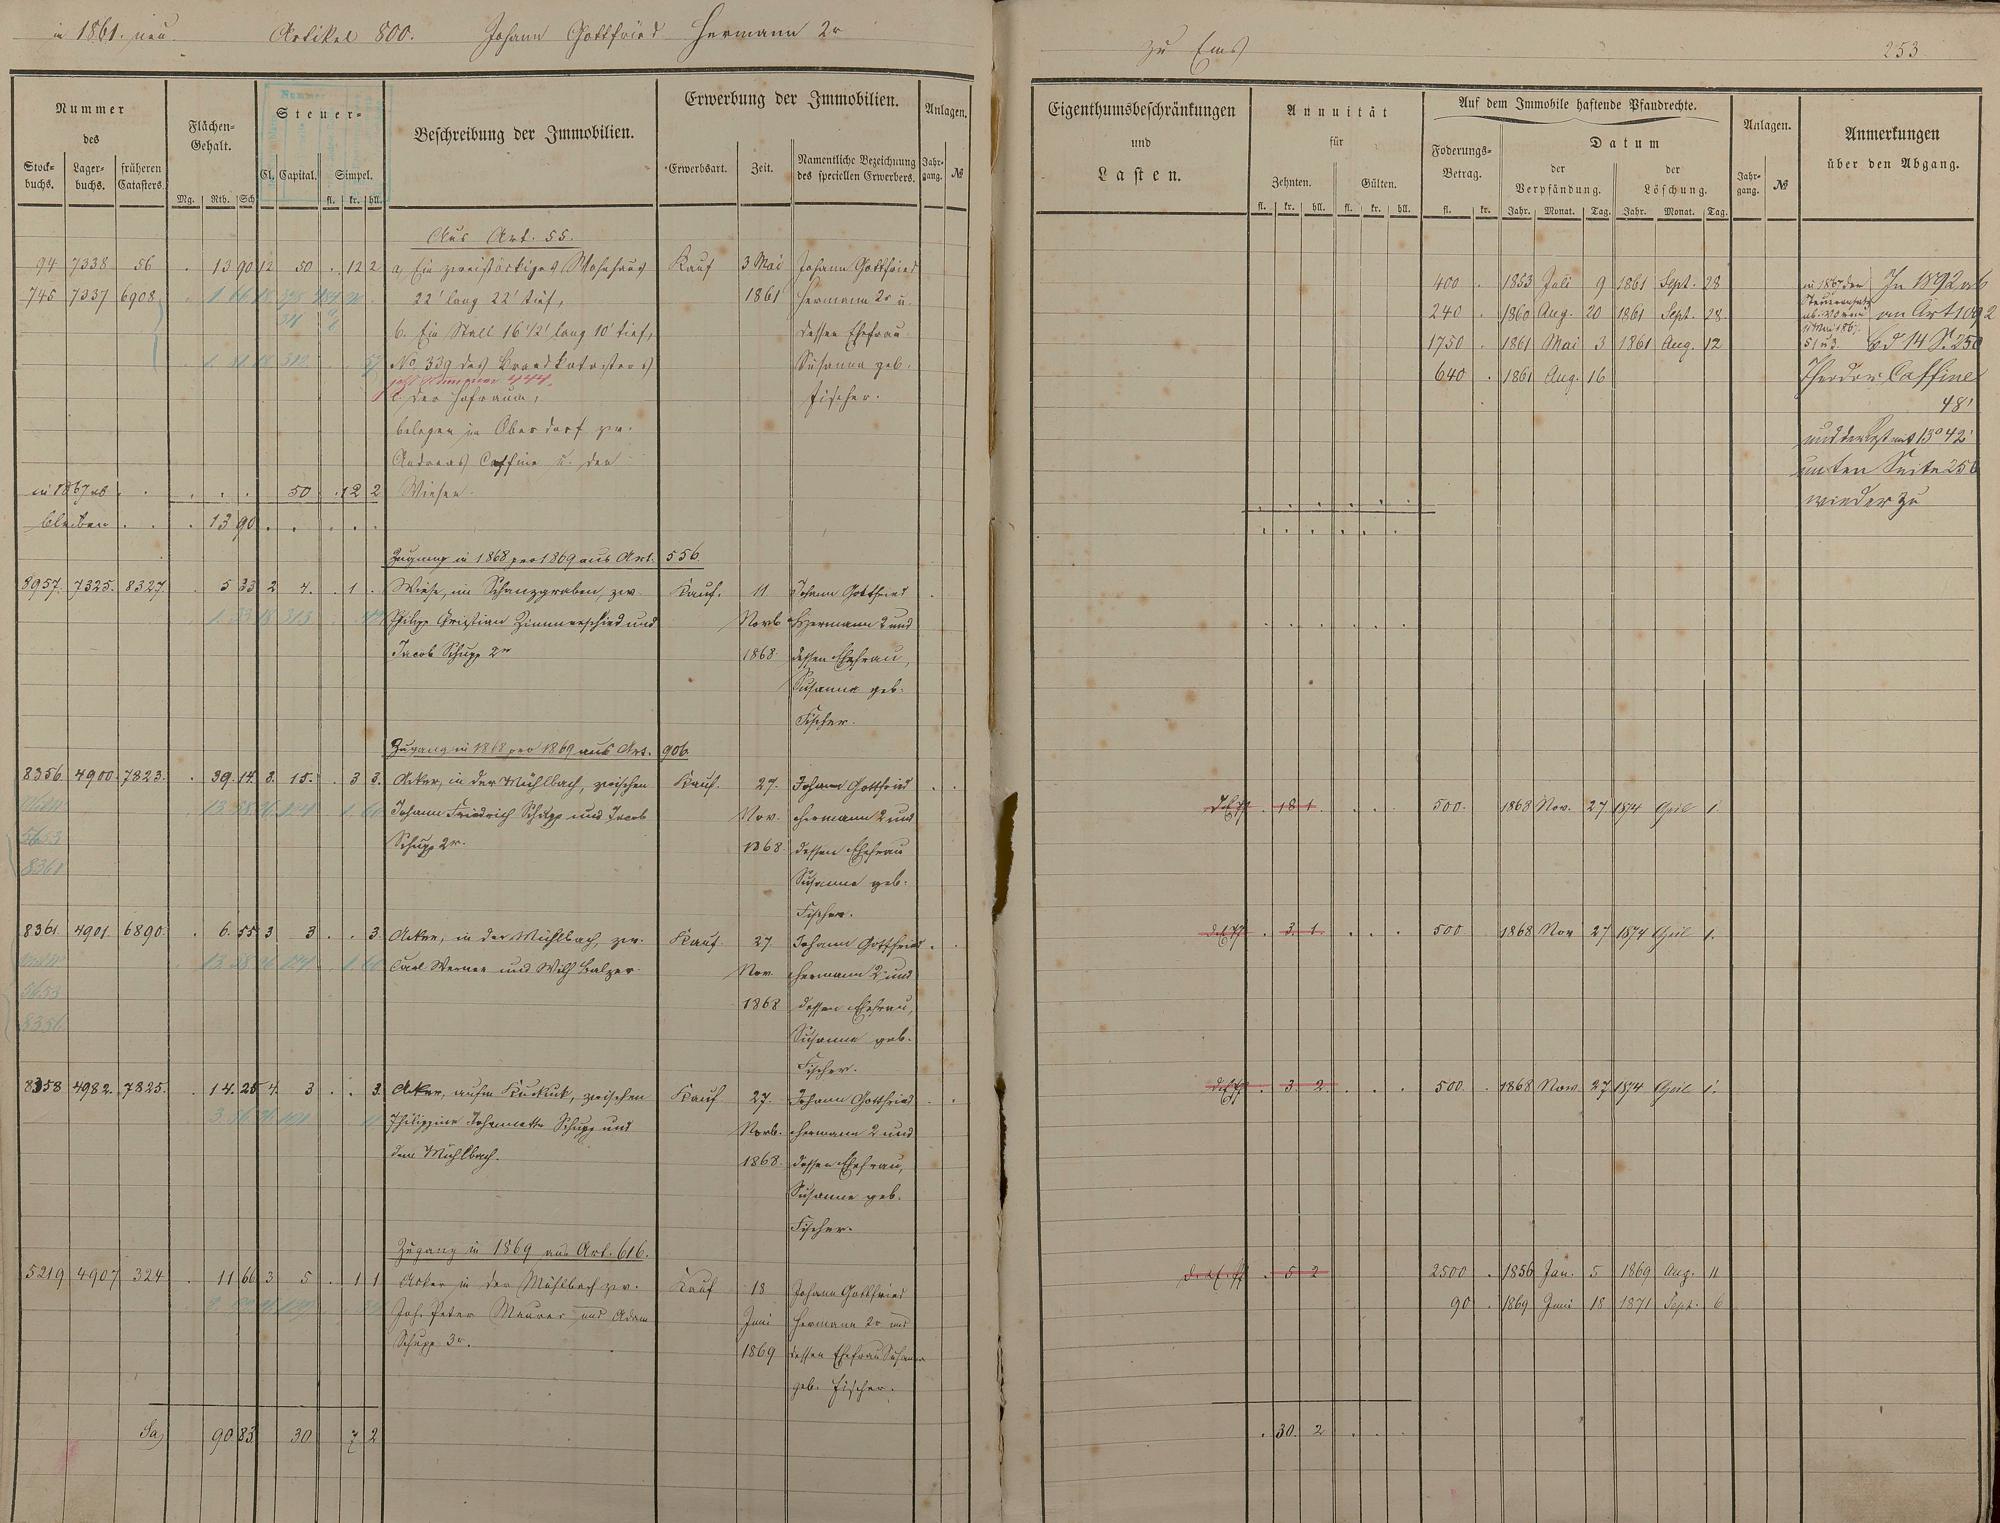 in 1861. neu. Artikel 800. Johann Gottfried Hermann 2r
zu Ems
253
Nummer
des
Stock-
buchs.
Lager-
buchs.
früheren
Catasters.
Flächen-
Gehalt.
Mg. Rth. Sch
Steuer-
Cl. Capital. Simpel.
fl. kr. hll.
Beschreibung der Immobilien.
Erwerbung der Immobilien.
Erwerbsart. Zeit.
Namentliche Bezeichnung
des speciellen Erwerbers.
Anlagen.
Jahr-
gang. №
Eigenthumsbeschränkungen
und
Lasten.
Annuität
für
Zehnten. Gülten.
fl. kr. hll. fl. kr. hll.
Auf dem Immobile haftende Pfandrechte.
Foderungs-
Betrag.
fl. kr.
Datum
der
Verpfändung.
der
Löschung.
Jahr. Monat. Tag. Jahr. Monat. Tag.
Anlagen.
Jahr-
gang. №
Anmerkungen
über den Abgang.
Aus Art. 55.
94 7338 56 . 13 90 12 50 . 12 2 a, Ein zweistöckiges Wohnhaus Kauf 3 Mai Johann Gottfried
745 7337 6908 22' lang 22' tief, 1861 Hermann 2r u.
b. Ein Stall 16 1/2' lang 10' tief, dessen Ehefrau
No 339 des Brandkatasters Susanna geb.
jetzt Nummer 444.
c. der Hofraum, Fischer.
belegen im Oberdorf zw.
Andreas Caffine u. den
in 1867 ab . . . . . 50 . 12 2 Wiesen.
bleiben . . . 13 90 . . . . .
400 . 1853 Juli 9 1861 Sept. 28
240 . 1860 Aug. 20 1861 Sept. 28
1750 . 1861 Mai 3 1861 Aug. 12
640 . 1861 Aug. 16
In 1892 ab
an Art 1092
bd 14 S. 250
Theodor Caffine
48'
und der Rest mit 13° 42'
unten Seite 256
wieder zu
Zugang in 1868 pro 1869 aus Art. 556.
8957. 7325. 8327. . 5 33 2 4. . 1 . Wiese, im Schanzgraben, zw. Kauf. 11 Johann Gottfried
Philipp Christian Zimmerschied und Novb Hermann 2 und
Jacob Schupp 2r 1868. dessen Ehefrau,
Susanna geb.
Fischer.
Zugang in 1868 pro 1869 aus Art. 906.
8356. 4900. 7823. . 39. 14. 3. 15. . 3 3. Acker, in der Mühlbach, zwischen Kauf. 27. Johann Gottfried
Johann Friedrich Schupp und Jacob Nov. Hermann 2 und
Schupp 2r. 1868. dessen Ehefrau
5653 Susanna geb.
8361 Fischer.
18 1 500. 1868 Nov. 27 1874 April 1.
8361 4901. 6890 . 6. 55 3 3 . . 3. Acker, in der Mühlbach, zw. Kauf 27. Johann Gottfried
Carl Werner und Wilh Balzer. Nov. Hermann 2 und
5653 1868 dessen Ehefrau,
8356 Susanna geb.
Fischer.
. 3. 1. 500 1868 Nov 27 1874 April 1.
8358 4982. 7825. . 14. 25 4. 3 . . 3. Acker, aufm Kuckuk, zwischen Kauf 27. Johann Gottfried
Philippine Johannette Schupp und Novb. Hermann 2 und
dem Mühlbach. 1868. dessen Ehefrau,
Susanna geb.
Fischer.
. 3 2 500. 1868 Nov. 27 1874 April 1.
Zugang in 1869 aus Art. 616.
5219 4907 324 . 11 66 3 5 . 1 1 Acker in der Mühlbach zw. Kauf 18 Johann Gottfried
Joh. Peter Maurer und Adam Juni Hermann 2r und
Schupp 3r. 1869 dessen Ehefrau Susanna
geb. Fischer.
. 5 2 2500 . 1856 Jan. 5 1869 Aug. 11
90 . 1869 Juni 18 1871 Sept. 6
Sa, 90 83 30 7 2
. 30. 2